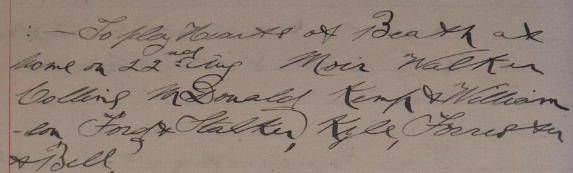 : — To play Hearts of Beath at
home on 22nd Aug Moir Walker
Colling McDonald Kemp & William
-son Ford & Stalker, Kyle, Forrester
& Bell.